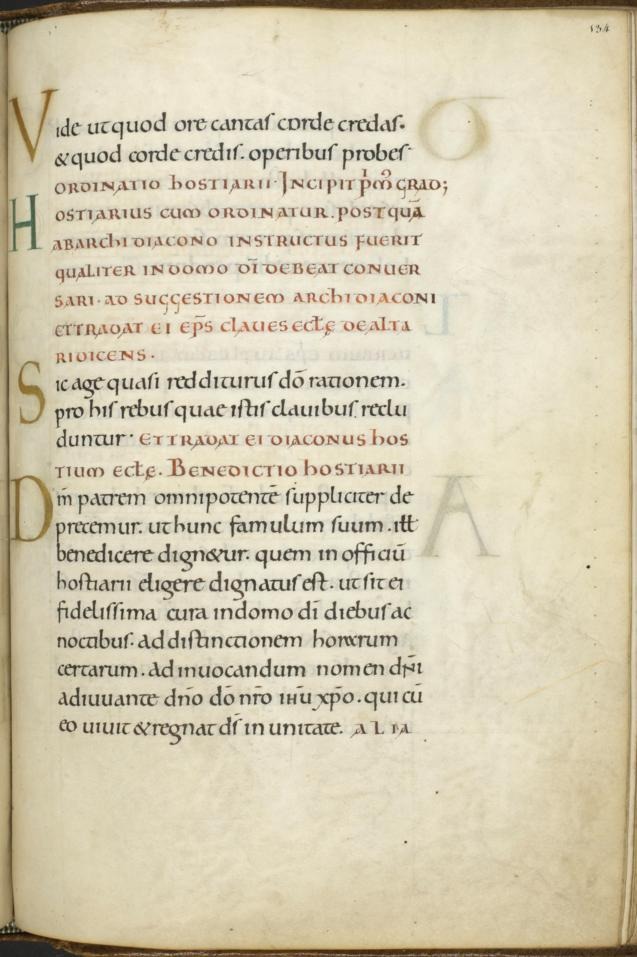 134
Vide ut quod ore cantas corde credas.
& quod corde credis. operibus probes
ORDINATIO hOSTIARII. INCIPIT pͬM̄ GRAD;
HOSTIARIUS CUM ORDINATUR. POSTQUĀ
AB ARChIDIACONO INSTRUCTUS FUERIT
QUALITER IN DOMO DĪ DEBEAT CONUER
SARI. AD SUGGESTIONEM ARChIDIACONI
ET TRADAT EI EPS̄ CLAUES ECLĘ̄ DE ALTA
RI DICENS.
Sic age quasi redditurus dō rationem.
pro his rebus quae istis clauibus reclu
duntur. ET TRADAT EI DIACONUS hOS
TIUM ECLĘ̄. BENEDICTIO hOSTIARII
Dm̄ patrem omnipotentē suppliciter de
precemur. ut hunc famulum suum. ill̄
benedicere dign&ur. quem in officiū
hostiarii eligere dignatus est. ut sit ei
fidelissima cura in domo dī diebus ac
noctibus. ad distinctionem horarum
certarum. ad inuocandum nomen dn̄i
adiuuante dn̄o dō nr̄o ihū xp̄o. qui cū
eo uiuit & regnat ds̄ in unitate. ALIA